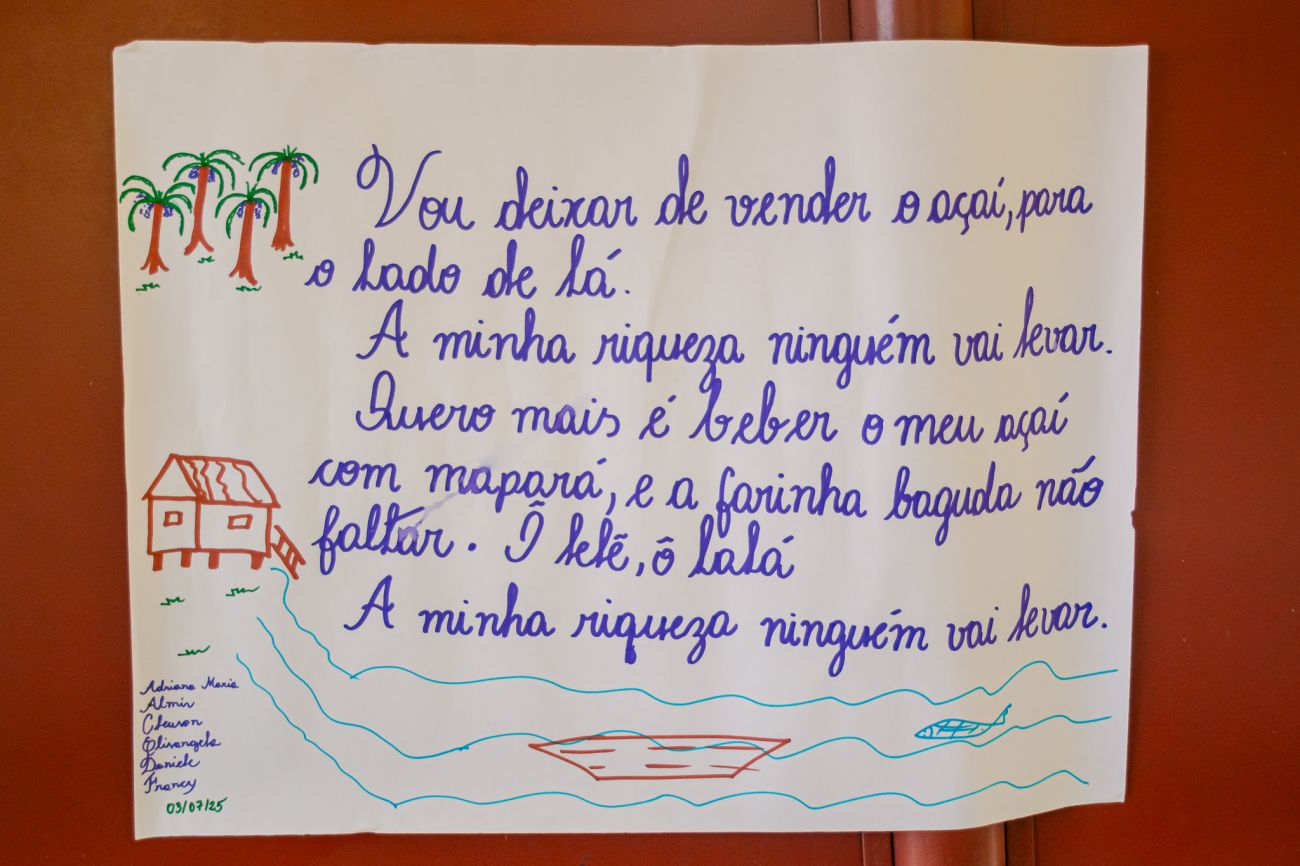 Vou deixar de vender o açaí, para
o lado de lá.
A minha riqueza ninguém vai levar.
Quero mais é beber o meu açaí
com mapará, e a farinha baguda não
faltar. Ô lelê, ô lalá
A minha riqueza ninguém vai levar.
Adriana Maria
Almir
Cleuson
Olivangela
Daniele
Francy
03/07/25